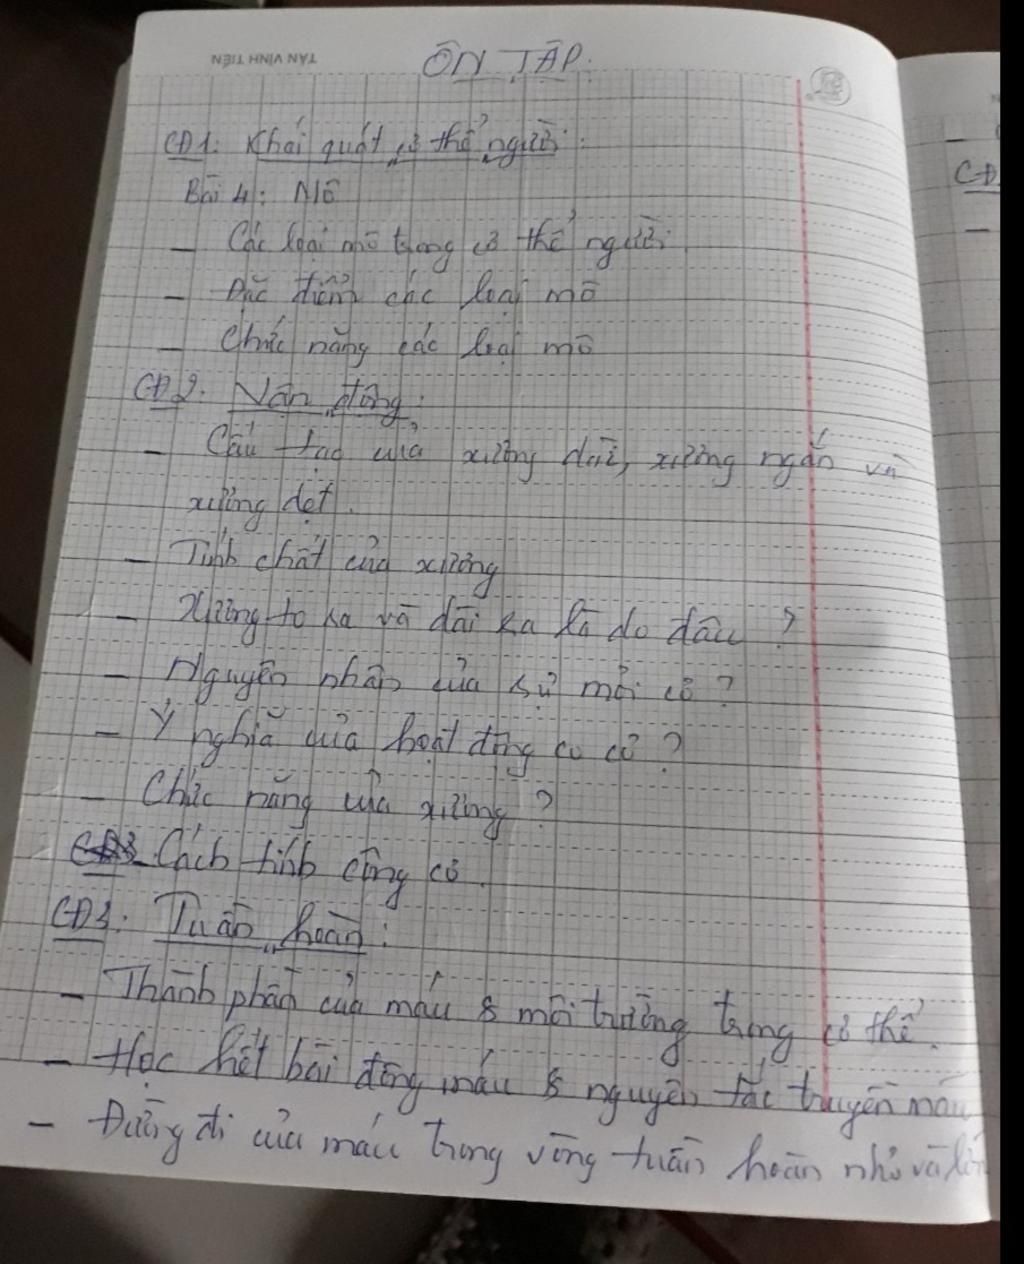 TÂN VĨNH TIẾN
ÔN TẬP.
CĐ1. Khái quát cơ thể người:
Bài 4: Mô
- Các loại mô trong cơ thể người.
- Đặc điểm các loại mô
- Chức năng các loại mô
CĐ2. Vận động:
- Cấu tạo của xương dài, xương ngắn và
xương dẹt.
- Tính chất của xương
- Xương to ra và dài ra là do đâu?
- Nguyên nhân của sự mỏi cơ?
- Ý nghĩa của hoạt động co cơ?
- Chức năng của xương?
- Cách tính công cơ.
CĐ3. Tuần hoàn:
- Thành phần của máu & môi trường trong cơ thể.
- Học hết bài đông máu & nguyên tắc truyền máu
- Đường đi của máu trong vòng tuần hoàn nhỏ và lớn
CĐ